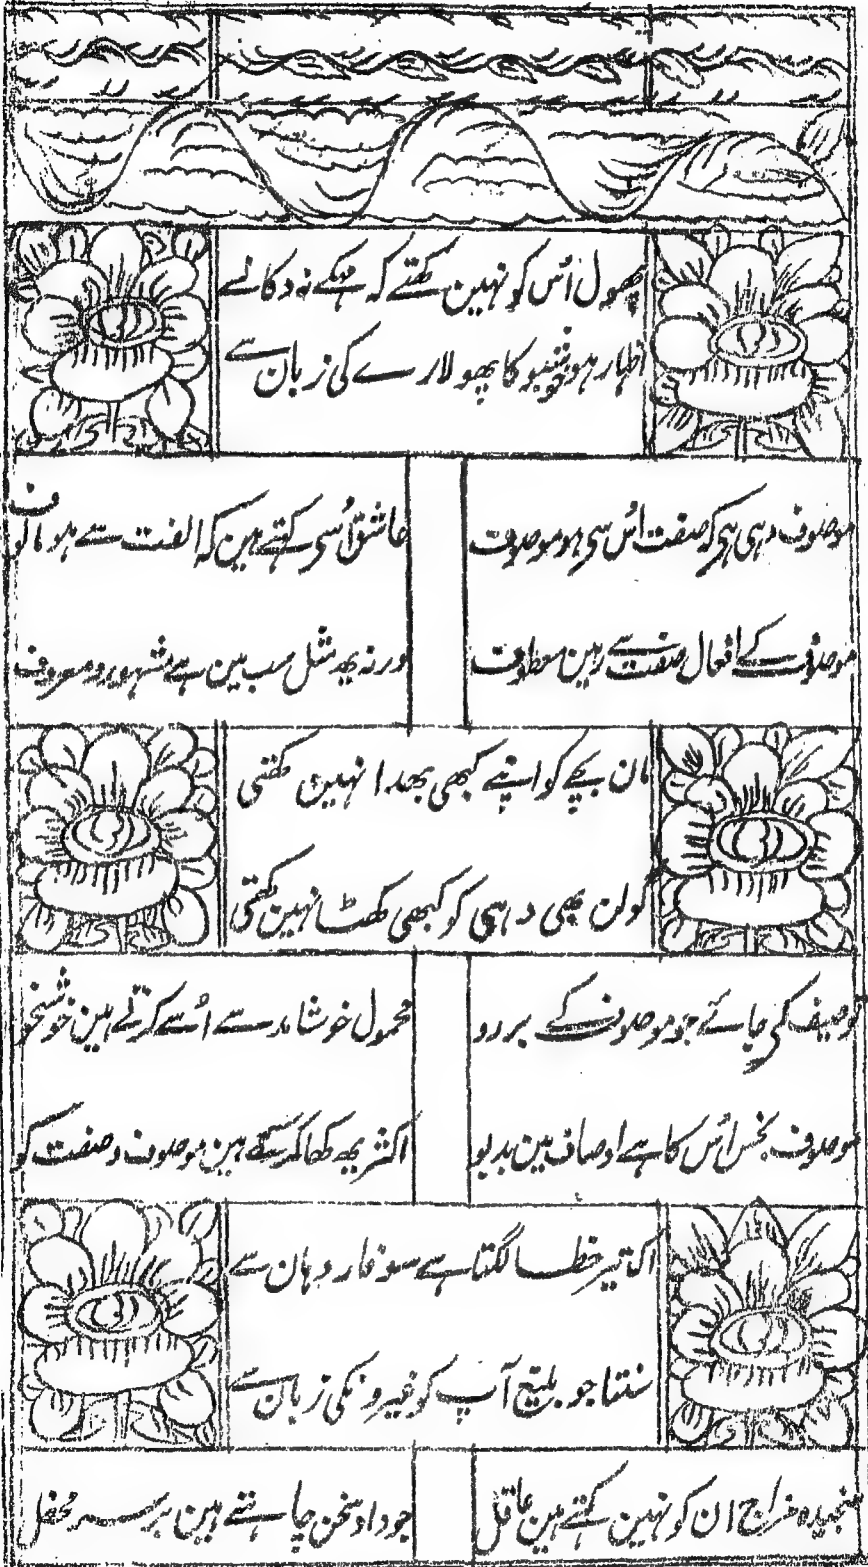 پھول اُس کو نہین کہتے کہ مہکے نہ دکانسے
اظہار ہو خوشبو کا پھولارے کی زبان سے
موصوف وہی ہی کہ صفت اُس سی ہو موصوف
عاشق اُسی کہتے ہین کہ الفت سے ہو مالوف
موصوف کے افعال صفت سے رہین معطوف
ورنہ یہہ مثل سب مین ہے مشہور و معروف
مان بچے کو اپنے کبھی بھدا نہین کہتی
گولن بھی دہی کو کبھی کھٹا نہین کہتی
توصیف کی جائے جو موصوف کے بررو
محمول خوشامد سے اُسے کرتے ہین خوشخو
موصوف نجس اُس کا ہے اوصاف مین بدبو
اکثر یہہ کہا کرتے ہین موصوف و صفت کو
اک تیر خطا لگتا ہے سوفار دہان سے
سنتا جو بلیغ آپ کو غیرونکی زبان سے
سنجیدہ مزاج ان کو نہین کہتے ہین عاقل
جو داد سخن چاہتے ہین بر سر محفل